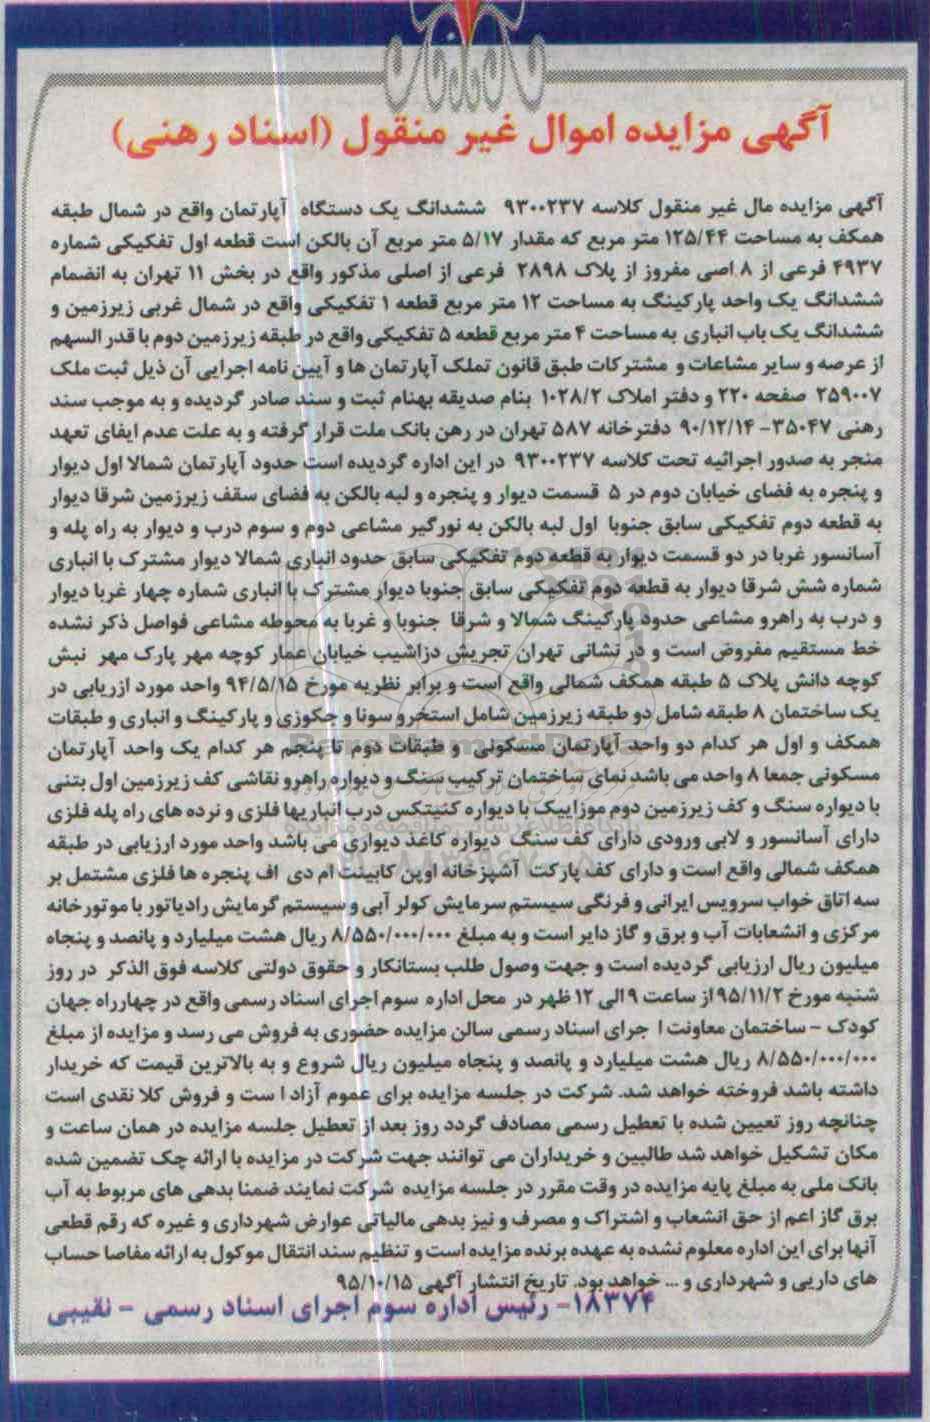 آگهی مزایده اموال غیر منقول (اسناد رهنی)
آگهی مزایده مال غیر منقول کلاسه ۹۳۰۰۲۳۷ ششدانگ یک دستگاه آپارتمان واقع در شمال طبقه
همکف به مساحت ۱۲۵/۴۴ متر مربع که مقدار ۵/۱۷ متر مربع آن بالکن است قطعه اول تفکیکی شماره
۴۹۳۷ فرعی از ۸ اصی مفروز از پلاک ۲۸۹۸ فرعی از اصلی مذکور واقع در بخش ۱۱ تهران به انضمام
ششدانگ یک واحد پارکینگ به مساحت ۱۲ متر مربع قطعه ۱ تفکیکی واقع در شمال غربی زیرزمین و
ششدانگ یک باب انباری به مساحت ۴ متر مربع قطعه ۵ تفکیکی واقع در طبقه زیرزمین دوم با قدر السهم
از عرصه و سایر مشاعات و مشترکات طبق قانون تملک آپارتمان ها و آیین نامه اجرایی آن ذیل ثبت ملک
۲۵۹۰۰۷ صفحه ۲۲۰ و دفتر املاک ۱۰۲۸/۲ بنام صدیقه بهنام ثبت و سند صادر گردیده و به موجب سند
رهنی ۳۵۰۴۷- ۹۰/۱۲/۱۴ دفترخانه ۵۸۷ تهران در رهن بانک ملت قرار گرفته و به علت عدم ایفای تعهد
منجر به صدور اجرائیه تحت کلاسه ۹۳۰۰۲۳۷ در این اداره گردیده است حدود آپارتمان شمالا اول دیوار
و پنجره به فضای خیابان دوم در ۵ قسمت دیوار و پنجره و لبه بالکن به فضای سقف زیرزمین شرقا دیوار
به قطعه دوم تفکیکی سابق جنوبا اول لبه بالکن به نورگیر مشاعی دوم و سوم درب و دیوار به راه پله و
آسانسور غربا در دو قسمت دیوار به قطعه دوم تفکیکی سابق حدود انباری شمالا دیوار مشترک با انباری
شماره شش شرقا دیوار به قطعه دوم تفکیکی سابق جنوبا دیوار مشترک با انباری شماره چهار غربا دیوار
و درب به راهرو مشاعی حدود پارکینگ شمالا و شرقا جنوبا و غربا به محوطه مشاعی فواصل ذکر نشده
خط مستقیم مفروض است و در نشانی تهران تجریش دزاشیب خیابان عمار کوچه مهر پارک مهر نبش
کوچه دانش پلاک ۵ طبقه همکف شمالی واقع است و برابر نظریه مورخ ۹۴/۵/۱۵ واحد مورد ارزیابی در
یک ساختمان ۸ طبقه شامل دو طبقه زیرزمین شامل استخرو سونا و جکوزی و پارکینگ و انباری و طبقات
همکف و اول هر کدام دو واحد آپارتمان مسکونی و طبقات دوم تا پنجم هر کدام یک واحد آپارتمان
مسکونی جمعا ۸ واحد می باشد نمای ساختمان ترکیب سنگ و دیواره راهرو نقاشی کف زیرزمین اول بتنی
با دیواره سنگ و کف زیرزمین دوم موزاییک با دیواره کنیتکس درب انباریها فلزی و نرده های راه پله فلزی
دارای آسانسور و لابی ورودی دارای کف سنگ دیواره کاغذ دیواری می باشد واحد مورد ارزیابی در طبقه
همکف شمالی واقع است و دارای کف پارکت آشپزخانه اوپن کابینت ام دی اف پنجره ها فلزی مشتمل بر
سه اتاق خواب سرویس ایرانی و فرنگی سیستم سرمایش کولر آبی و سیستم گرمایش رادیاتور با موتورخانه
مرکزی و انشعابات آب و برق و گاز دایر است و به مبلغ ۸/۵۵۰/۰۰۰/۰۰۰ ریال هشت میلیارد و پانصد و پنجاه
میلیون ریال ارزیابی گردیده است و جهت وصول طلب بستانکار و حقوق دولتی کلاسه فوق الذکر در روز
شنبه مورخ ۹۵/۱۱/۲ از ساعت ۹ الی ۱۲ ظهر در محل اداره سوم اجرای اسناد رسمی واقع در چهارراه جهان
کودک - ساختمان معاونت ا جرای اسناد رسمی سالن مزایده حضوری به فروش می رسد و مزایده از مبلغ
۸/۵۵۰/۰۰۰/۰۰۰ ریال هشت میلیارد و پانصد و پنجاه میلیون ریال شروع و به بالاترین قیمت که خریدار
داشته باشد فروخته خواهد شد. شرکت در جلسه مزایده برای عموم آزاد ا ست و فروش کلا نقدی است
چنانچه روز تعیین شده با تعطیل رسمی مصادف گردد روز بعد از تعطیل جلسه مزایده در همان ساعت و
مکان تشکیل خواهد شد طالبین و خریداران می توانند جهت شرکت در مزایده با ارائه چک تضمین شده
بانک ملی به مبلغ پایه مزایده در وقت مقرر در جلسه مزایده شرکت نمایند ضمنا بدهی های مربوط به آب
برق گاز اعم از حق انشعاب و اشتراک و مصرف و نیز بدهی مالیاتی عوارض شهرداری و غیره که رقم قطعی
آنها برای این اداره معلوم نشده به عهده برنده مزایده است و تنظیم سند انتقال موکول به ارائه مفاصا حساب
های دارایی و شهرداری و ... خواهد بود. تاریخ انتشار آگهی ۹۵/۱۰/۱۵
۱۸۳۷۴- رئیس اداره سوم اجرای اسناد رسمی - نقیبی